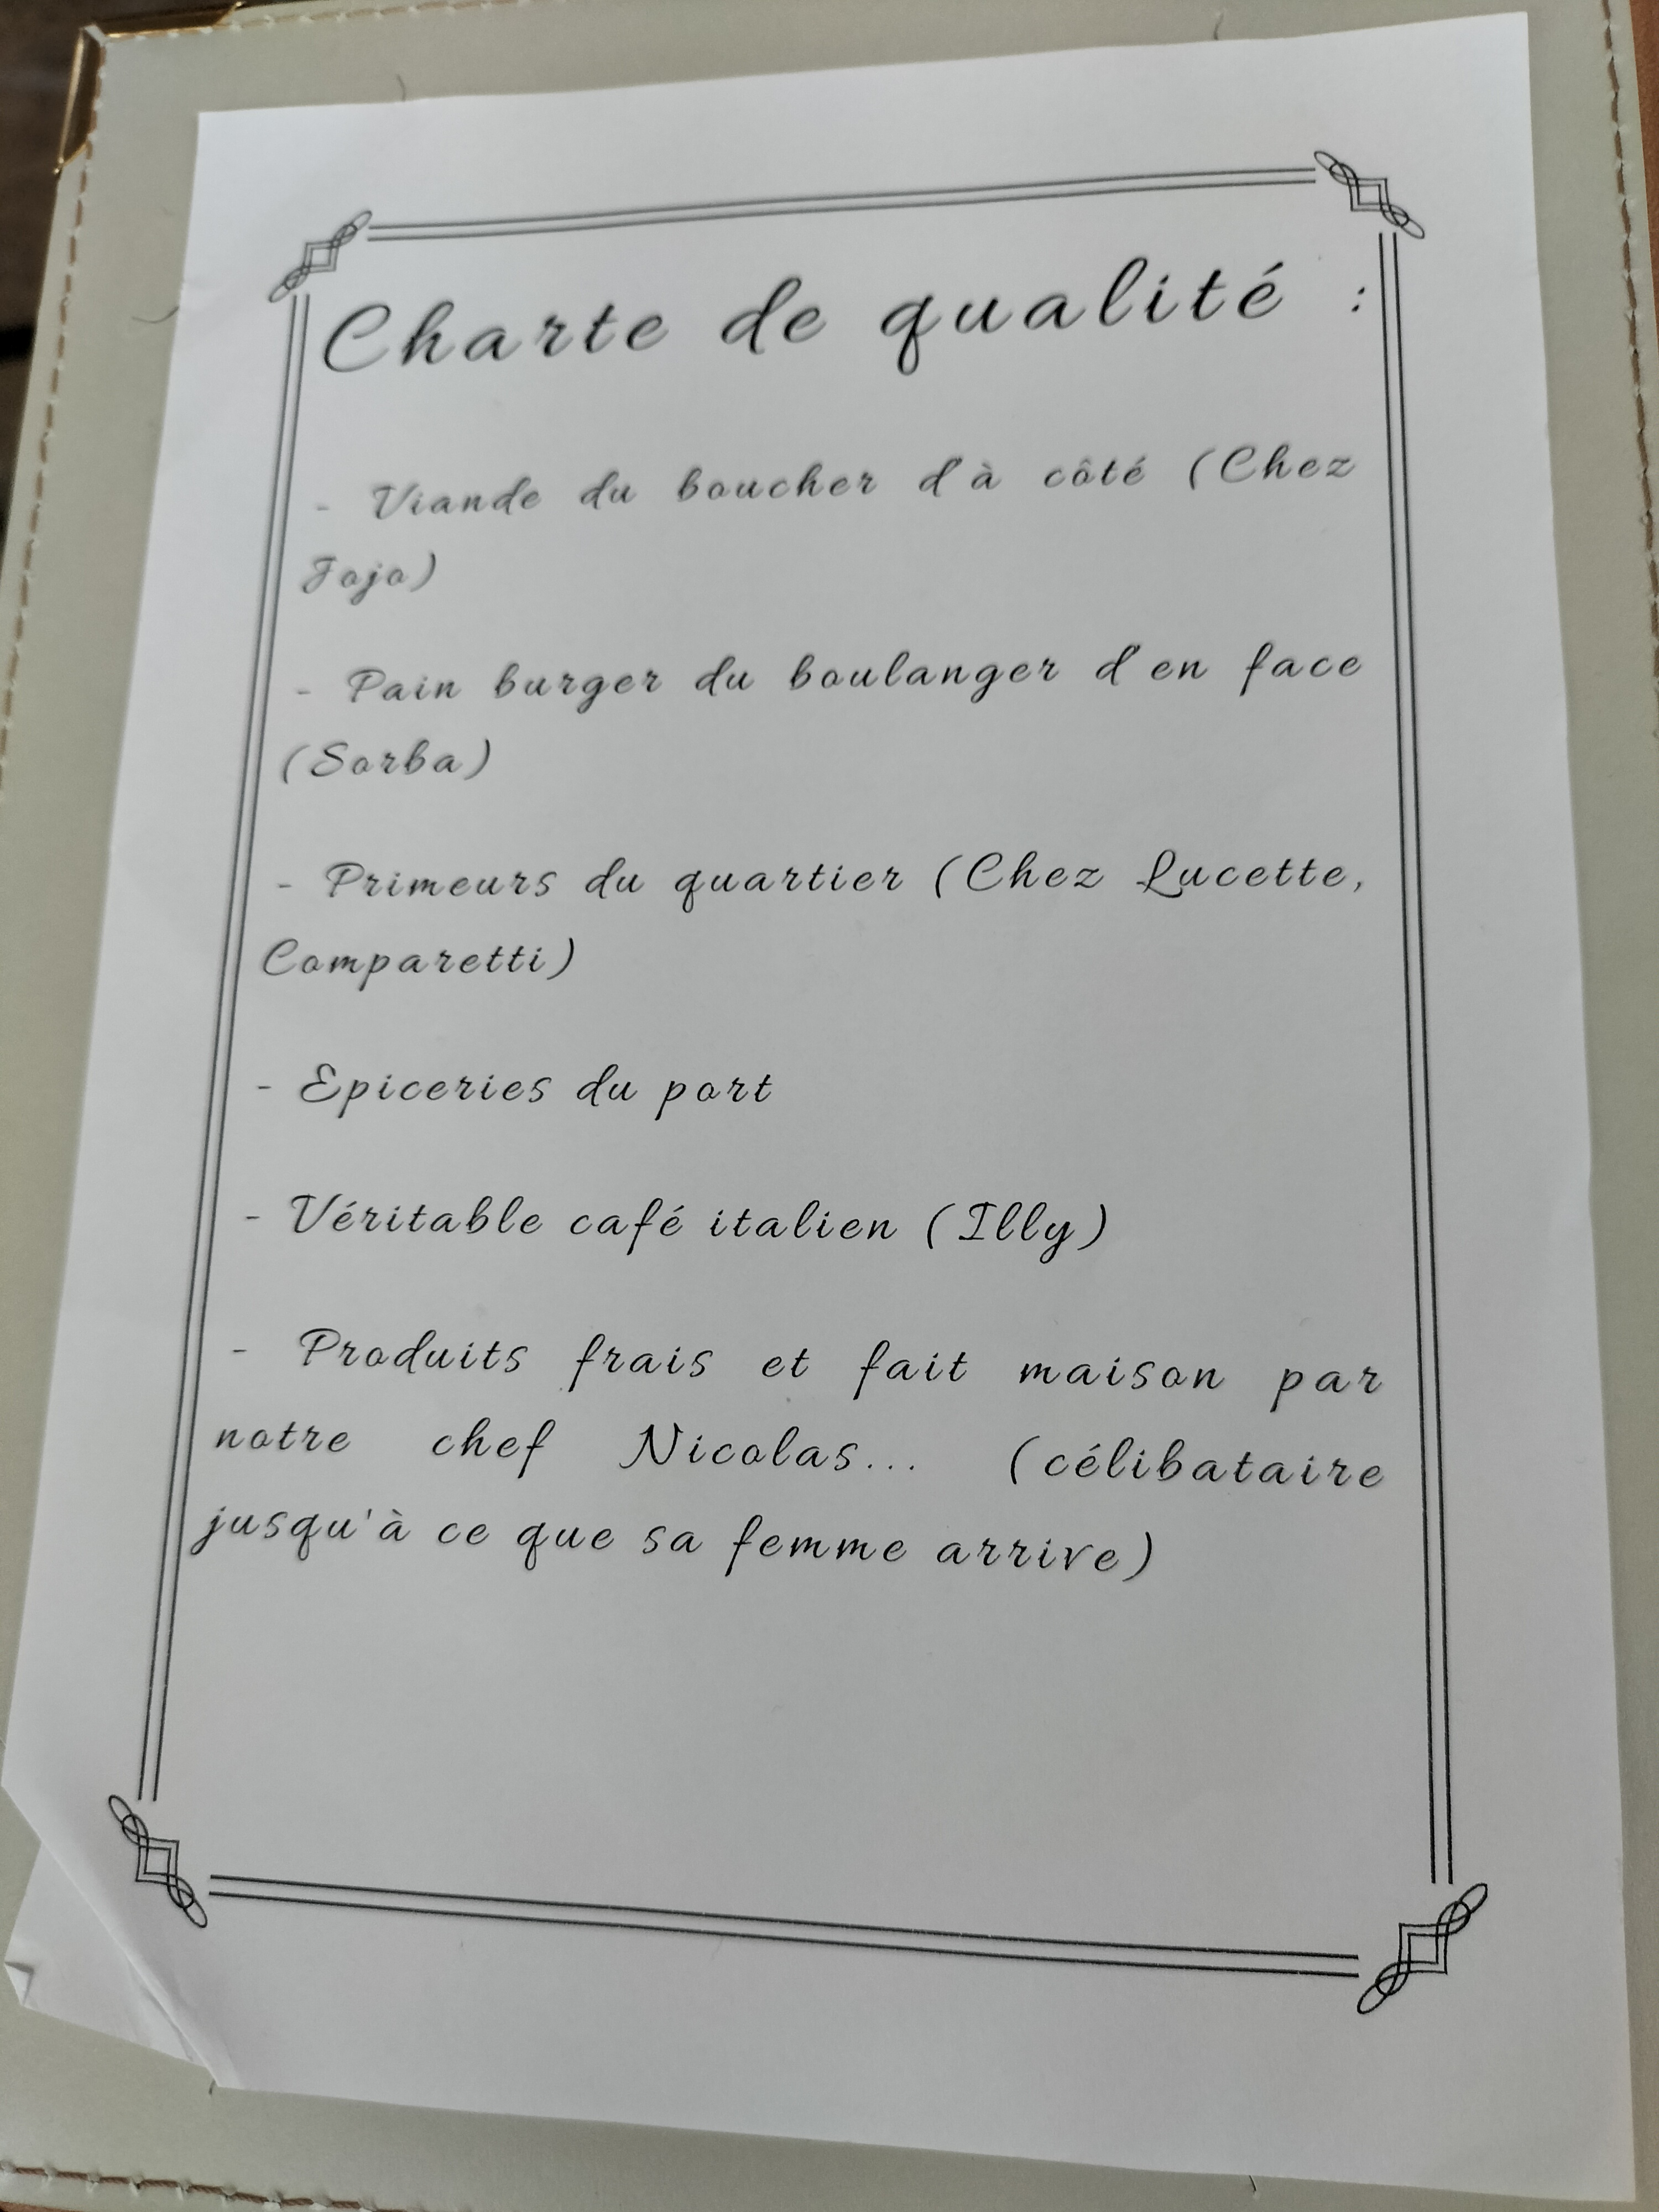 Charte de qualité :
- Viande du boucher d'à côté (Chez
Jojo)
- Pain burger du boulanger d'en face
(Sorba)
- Primeurs du quartier (Chez Lucette,
Comparetti)
- Epiceries du port
- Véritable café italien (Illy)
- Produits frais et fait maison par
notre chef Nicolas... (célibataire
jusqu'à ce que sa femme arrive)